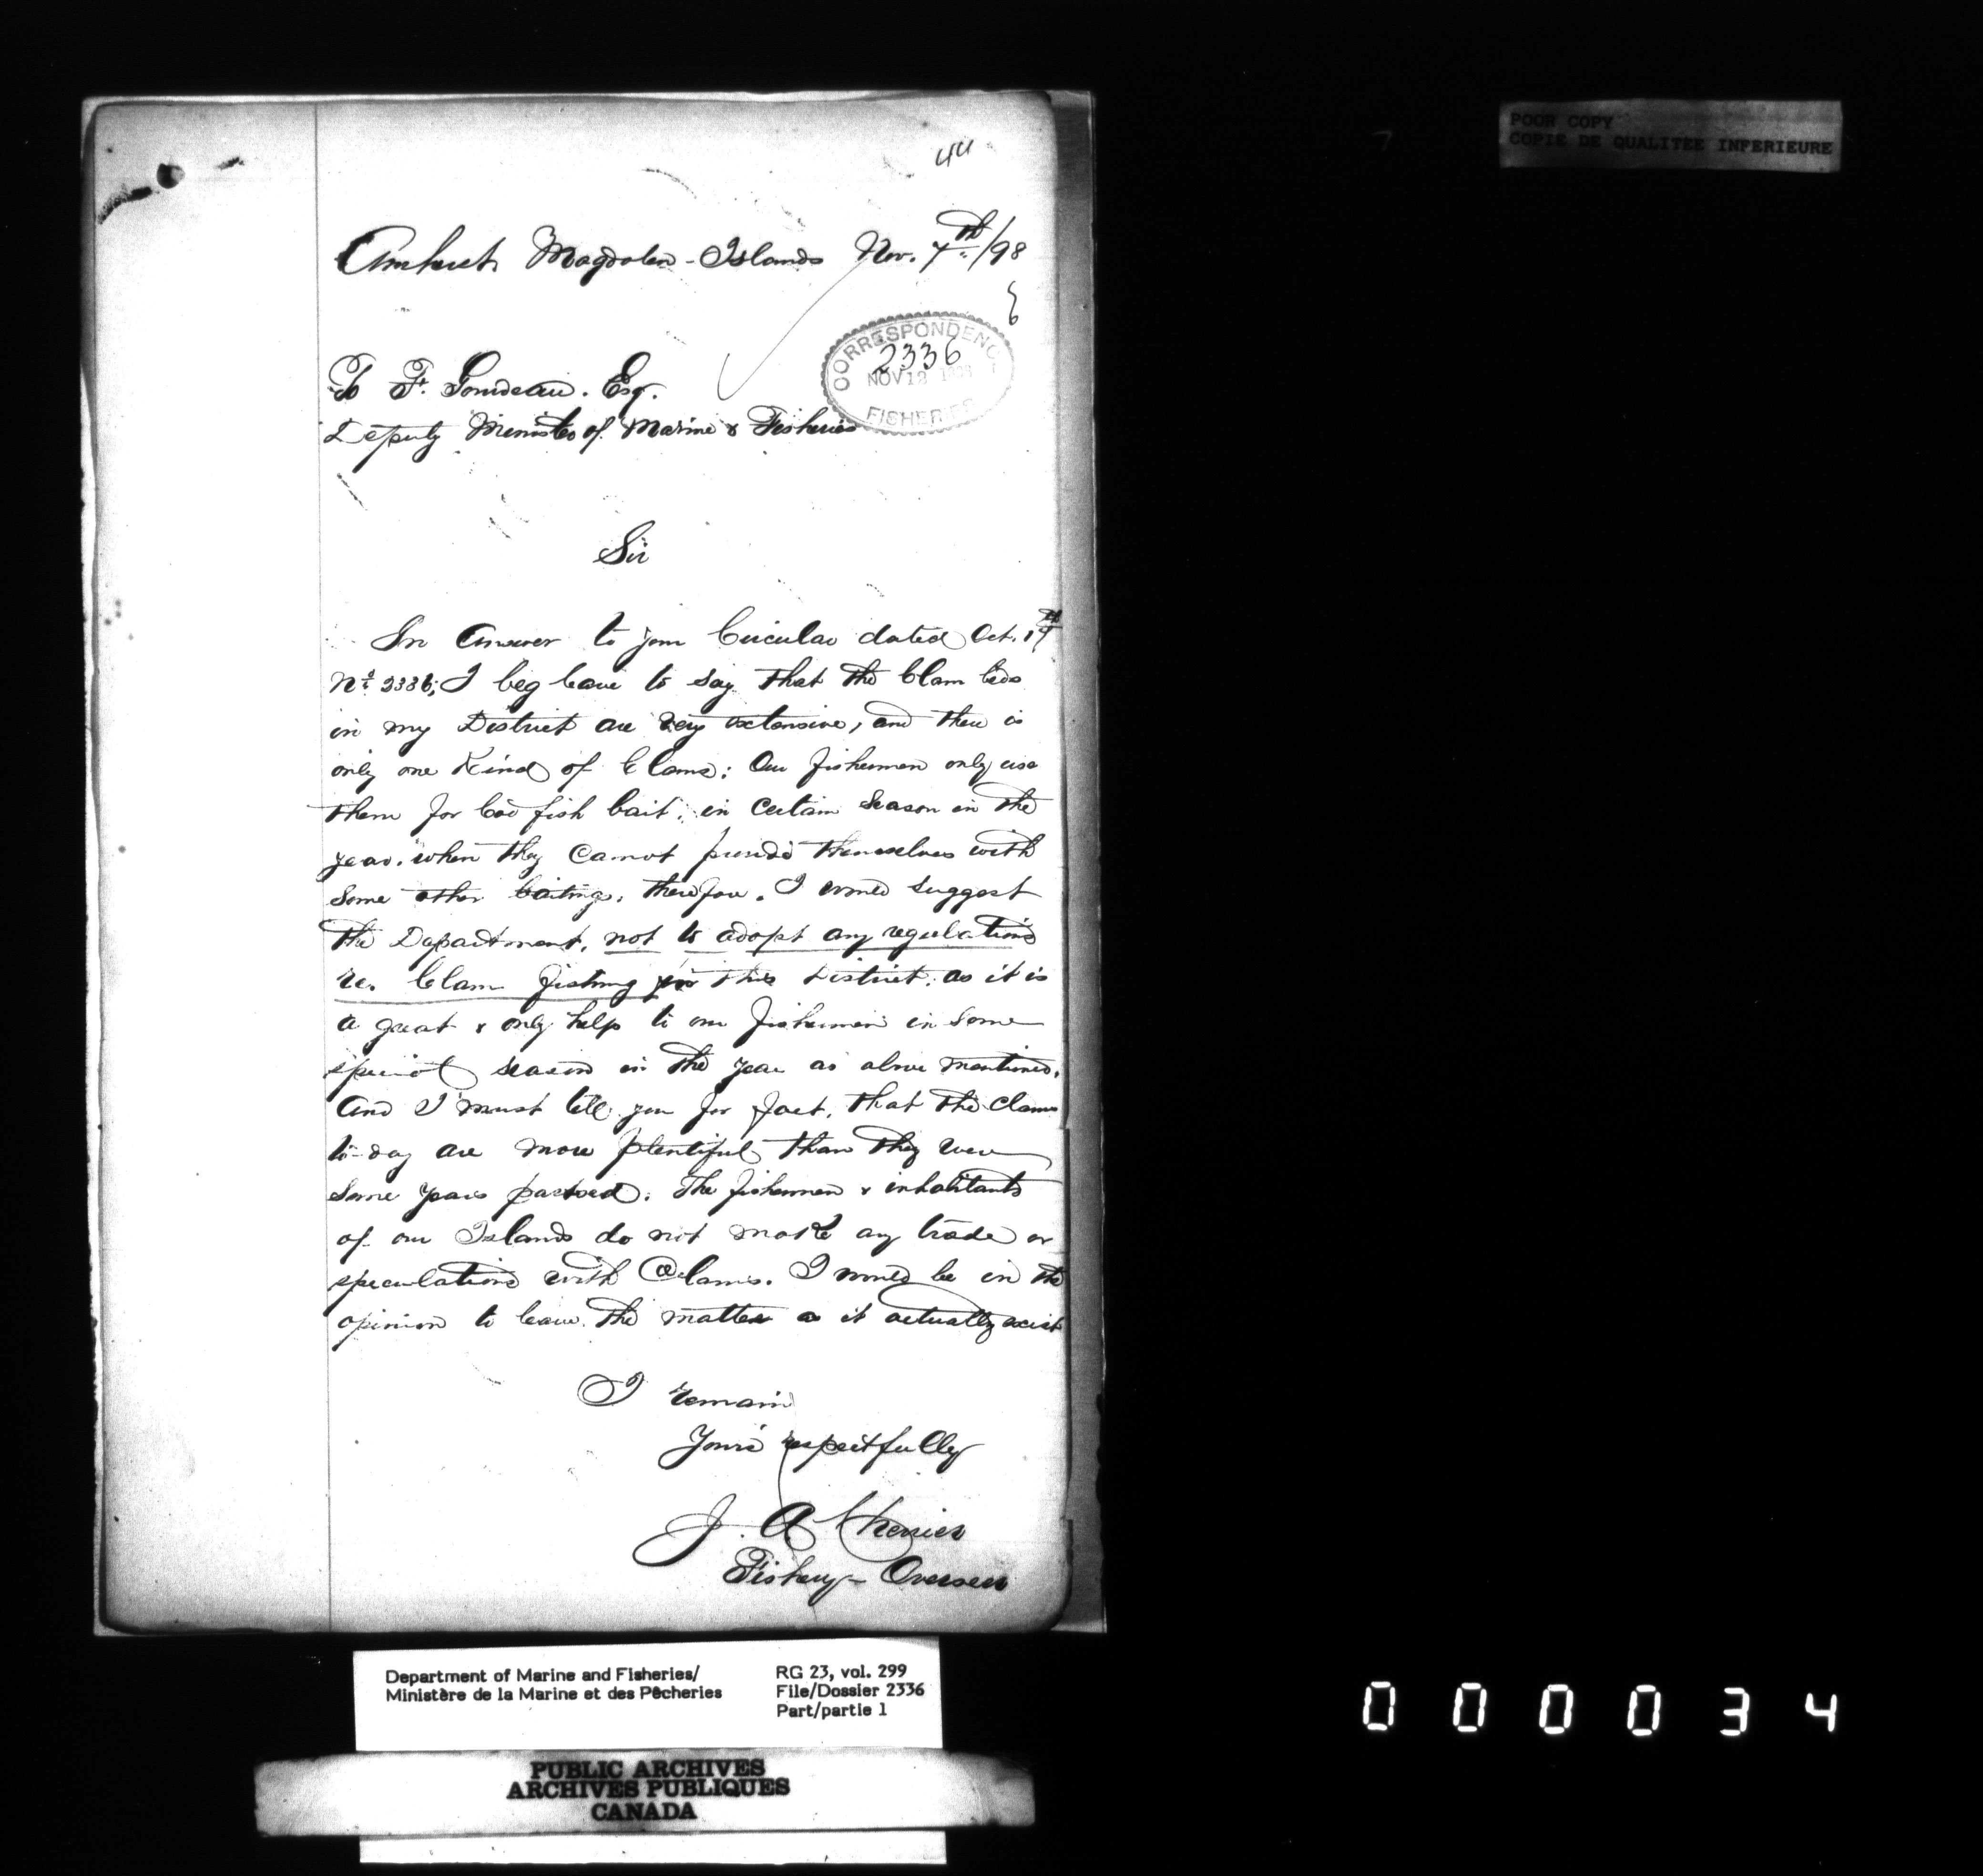 44
Amherst Magdalen-Islands Nov. 7th/98
CORRESPONDENCE
2336
NOV 12 1898
FISHERIES
To F. Gourdeau. Esq.
Deputy Minister of Marine & Fisheries
Sir
In Answer to your Circular dated Oct. 19th
No. 2336; I beg leave to say that the Clam beds
in my District are very extensive, and there is
only one Kind of Clams; Our fishermen only use
them for Cod fish bait, in certain Season in the
year, when they cannot provide themselves with
some other baiting, therefore. I would suggest
the Department, not to adopt any regulations
re. Clam fishing in this District, as it is
a great & only help to our fishermen in some
special season in the year as above mentioned.
And I must tell you for fact, that the clams
to-day are more plentiful than they were
some years passed. The fishermen & inhabitants
of our Islands do not make any trade or
speculations with Clams. I would be in the
opinion to leave the matter as it actually exist
I remain
Yours respectfully
J. A. Chenier
Fishery-Overseer
POOR COPY
COPIE DE QUALITEE INFERIEURE
Department of Marine and Fisheries/
Ministère de la Marine et des Pêcheries
RG 23, vol. 299
File/Dossier 2336
Part/partie 1
PUBLIC ARCHIVES
ARCHIVES PUBLIQUES
CANADA
000034